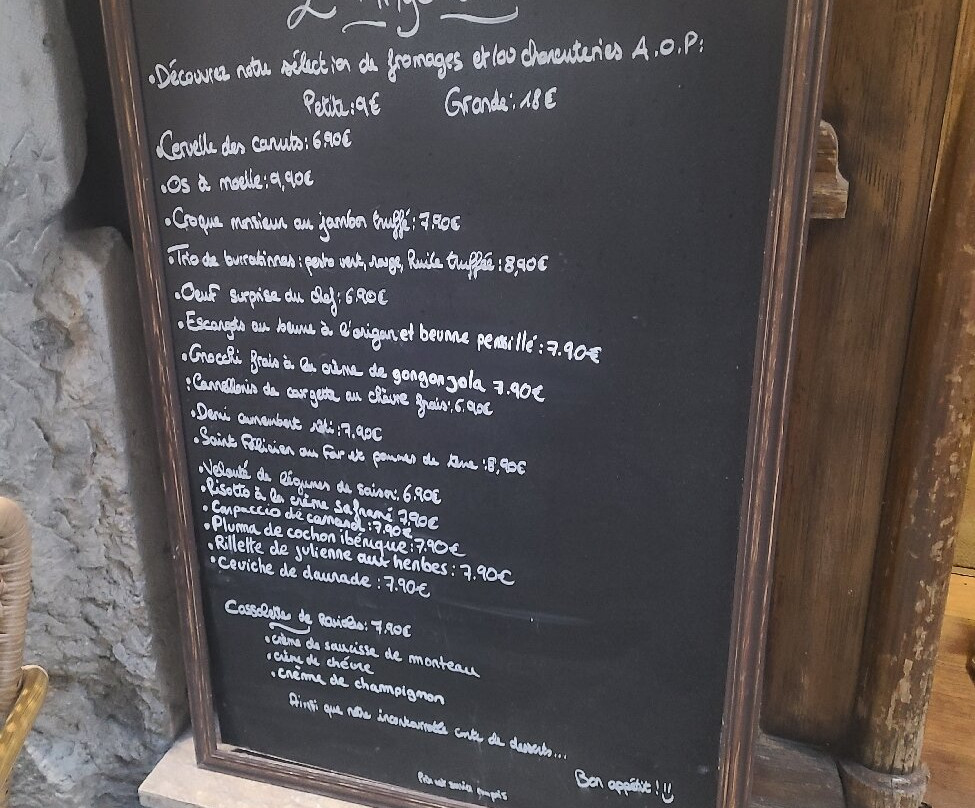 •Découvrez notre sélection de fromages et/ou charcuteries A.O.P:
Petite: 9€ Grande: 18€
•Cervelle des canuts: 6.90€
•Os à moelle: 9,90€
•Croque monsieur au jambon truffé: 7.90€
•Trio de burratinnas: pesto vert, rouge, huile truffée: 8,90€
•Oeuf surprise du chef: 6.90€
•Escargots au beurre à l'origan et beurre persillé: 7.90€
•Gnocchi frais à la crème de gongonzola 7.90€
•Cannellonis de courgette au chèvre frais: 6.90€
•Demi camembert rôti: 7,90€
•Saint Félicien au four et pommes de terre: 8,90€
•Velouté de légumes de saison: 6.90€
•Risotto à la crème safrané 7,90€
•Carpaccio de canard: 7.90€
•Pluma de cochon ibérique: 7.90€
•Rillette de julienne aux herbes: 7.90€
•Ceviche de daurade: 7.90€
Cassolette de Ravioles: 7.90€
•crème de saucisse de morteau
•crème de chèvre
•crème de champignon
Ainsi que notre incontournable carte de desserts...
Bon appétit!!
Prix net service compris